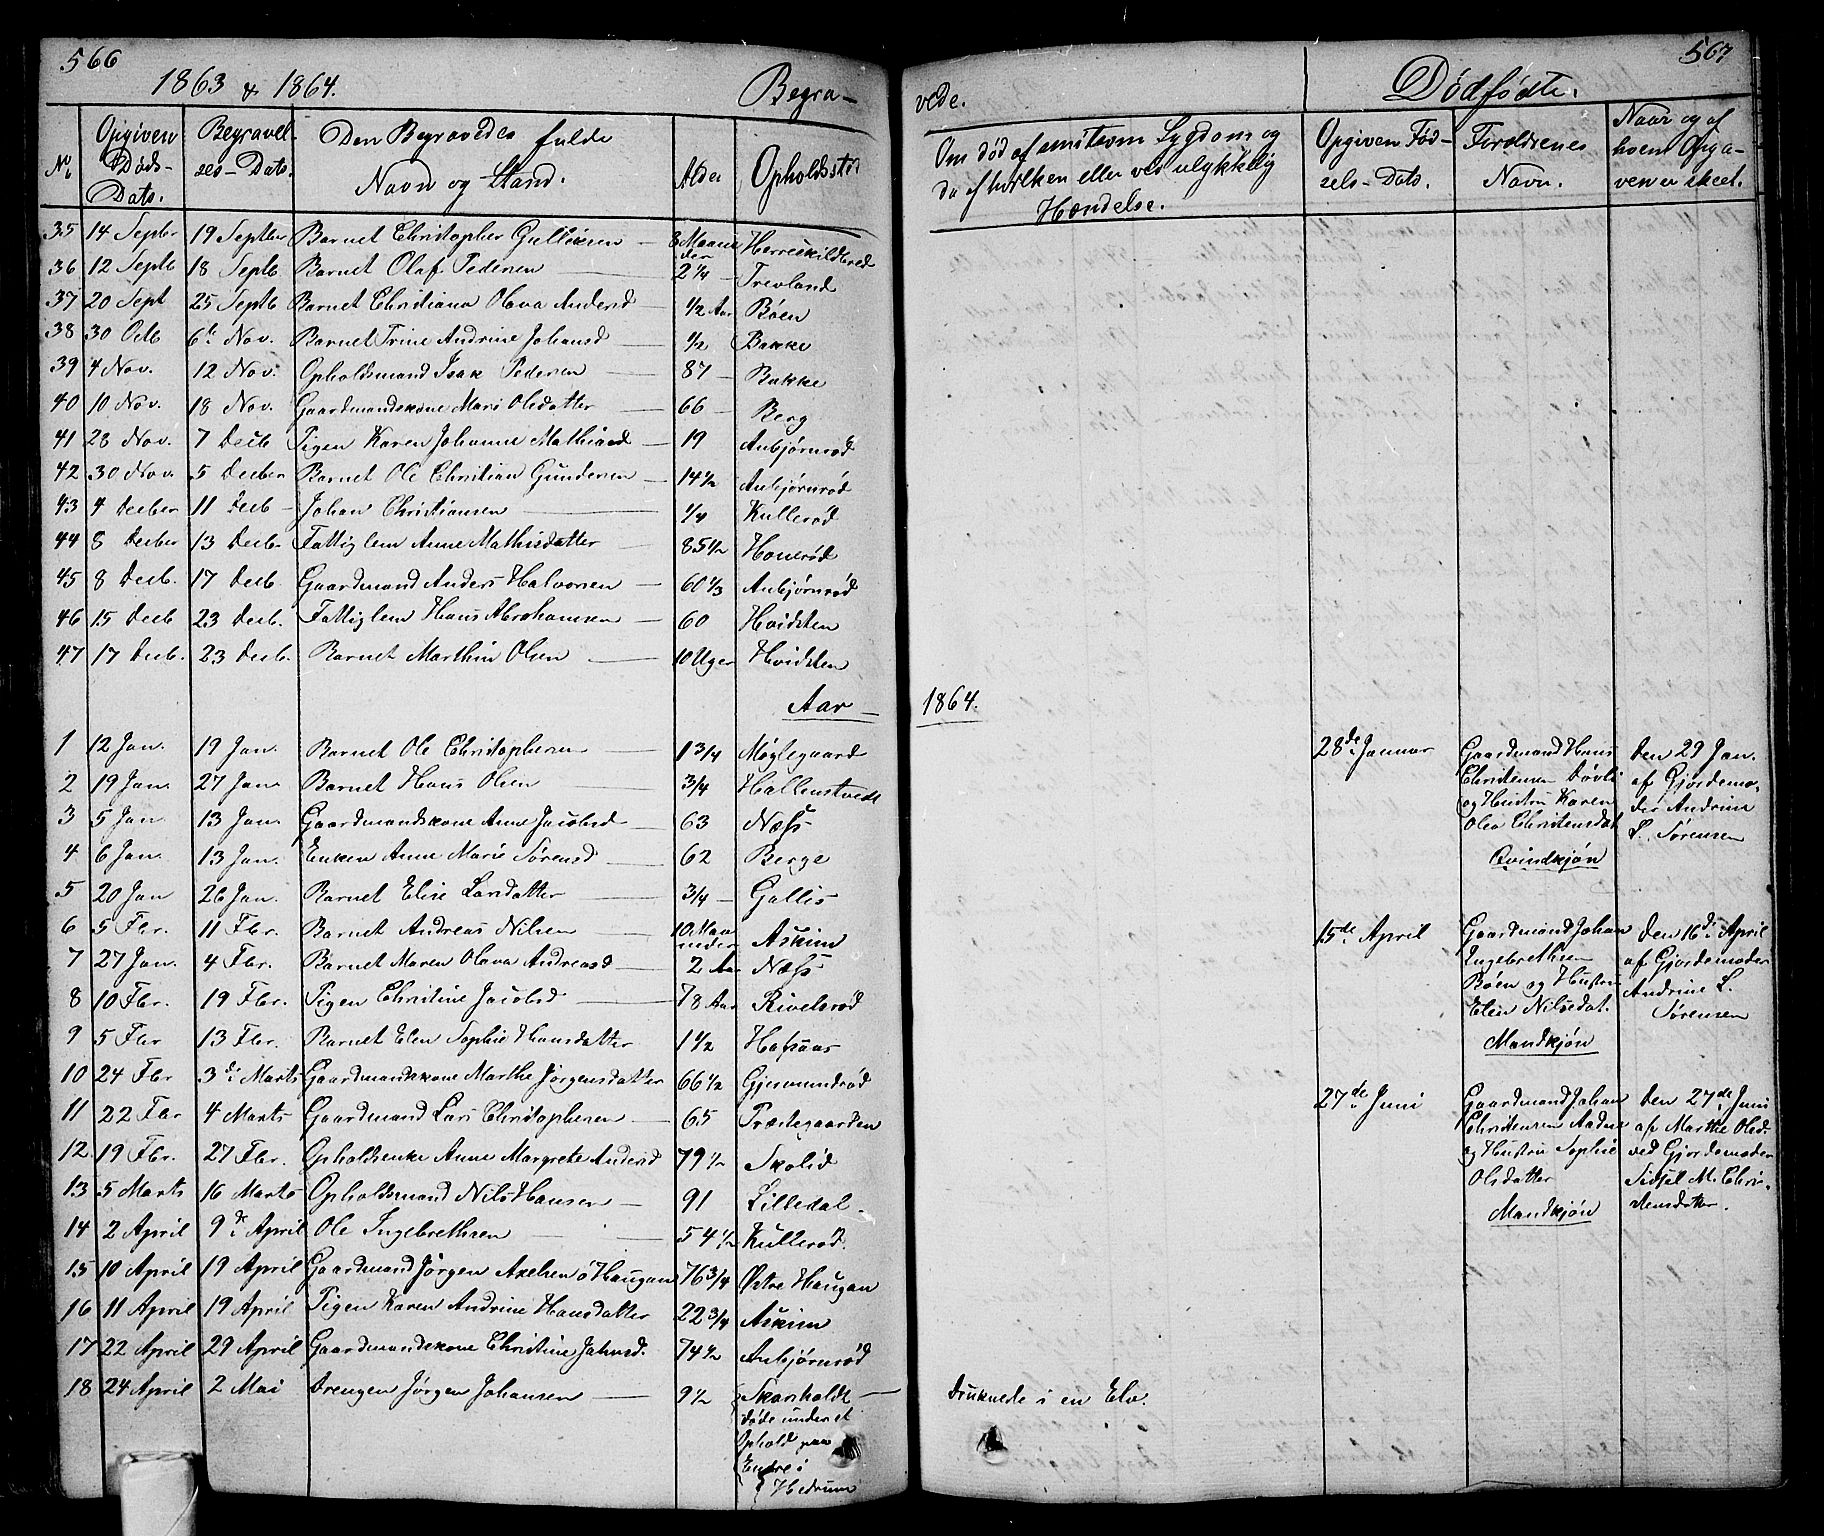 566
1863 & 1864.
Begra-
No
Opgiven Døds-Dato.
Begravelses-Dato.
Den Begravedes fulde Navn og Stand.
Alder
Opholdssted
35 14 Septbr 19 Septbr Barnet Christopher Gulliksen 8 Maaneder Herreskildtved
36 12 Septb 18 Septb Barnet Olaf Pedersen 2 1/4 Trevland
37 20 Sept 25 Septb Barnet Christiana Olava Andersd 1/2 Aar Bøen
38 30 Octb 6te Nov. Barnet Trine Andrine Johansd 1/2 Bakke
39 4 Nov. 12 Nov. Opholdsmand Isak Pedersen 87 Bakke
40 10 Nov. 18 Nov. Gaardmandskone Mari Olsdatter 66 Berg
41 28 Nov. 7 Decb Pigen Karen Johanne Mathiasd 19 Anbjørnrød
42 30 Nov. 5 Decber Barnet Ole Christian Gundersen 14 1/2 Anbjørnrød
43 4 Decber 11 Decb Johan Christiansen 1/4 Kullerød
44 8 Decber 13 Decb Fattiglem Anne Mathisdatter 85 1/2 Honerød
45 8 Decb. 17 Decb. Gaardmand Anders Halvorsen 60 1/3 Anbjørnrød
46 15 Decb 23 Decb. Fattiglem Hans Abrahamsen 60 Hvidsten
47 17 Decb. 23 Decb. Barnet Marthin Olsen 10 Uger Hvidsten
Aar
1 12 Jan. 19 Jan. Barnet Ole Christophersen 1 3/4 Møglegaard
2 19 Jan. 27 Jan. Barnet Hans Olsen 3/4 Hallenstvedt
3 5 Jan 13 Jan. Gaardmandskone Anne Jacobsd 63 Næss
4 6 Jan. 13 Jan. Enken Anne Marie Sørensd 62 Berge
5 20 Jan 26 Jan. Barnet Elise Larsdatter 3/4 Gallis
6 5 Fbr. 11 Fbr. Barnet Andreas Nilsen 10 Maaneder Askim
7 27 Jan. 4 Fbr. Barnet Maren Olava Andreasd 2 Aar Næss
8 10 Fbr. 19 Fbr. Pigen Christine Jacobsd 78 Aar Rivelsrød
9 5 Fbr 13 Fbr. Barnet Elen Sophie Hansdatter 1 1/2 Hafsaas
10 24 Fbr 3di Marts Gaardmandskone Marthe Jørgensdatter 66 1/2 Gjermundrød
11 22 Fbr 4 Marts Gaardmand Lars Christophersen 65 Præstegaarden
12. 19 Fbr. 27 Fbr. Opholdsenke Anne Margrete Andersd 79 1/2 Skolid
13 5 Marts 16 Marts Opholdsmand Nils Hansen 91 Lilledal.
14 2 April 9de April Ole Ingebrethsen 54 1/2 Kullerød.
15 10 April 19 April Gaardmand Jørgen Axelsen ø Haugan 76 3/4 Østre Haugan
16 11 April 19 April Pigen Karen Andrine Hansdatter 22 3/4 Askim
17 22 April 29 April Gaardmandskone Christine Jahnsd. 74 1/2 Anbjørnrød
18 24 April 2 Mai Drengen Jørgen Johansen 9 1/2 Skarsholdt
døde under et
Ophold paa
i
Hedrum
567
vede.
Dødfødte.
Om død af ansteven Sygdom og
da af hvilken eller ved ulykkelig
Hændelse.
Opgiven Fødsels-Dato.
Forældrenes Navn.
Naar og af hvem Opgaven er skeet.
1864.
28de Januar
Gaardmand Hans
Christensen Døvli
og Hustru Karen
Olea Christensdat
Qvindkjøn
Den 29 Jan.
af Gjordemo-
der Andrine
L. Sørensen
15de April
Gaardmand Johan
Ingebrethsen
Bøen og Hustru
Elen Nilsedat.
Mandkjøn
Den 16de April
af Gjordemoder
Andrine L.
Sørensen
27de Juni
Gaardmand Johan
Christensen Aadne
og Hustru Sophie
Olsdatter
Mandkjøn
Den 27de Juni
af Marthe Olsd.
ved Gjordemoder
Sidsel M. Chris-
tensdatter.
Druknede i en Elv.